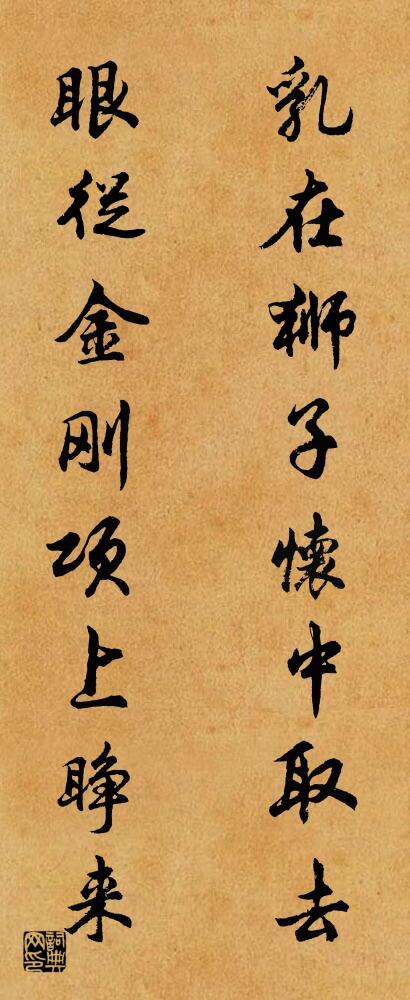 乳在狮子懷中取去
眼從金刚项上睁来
詞典网印